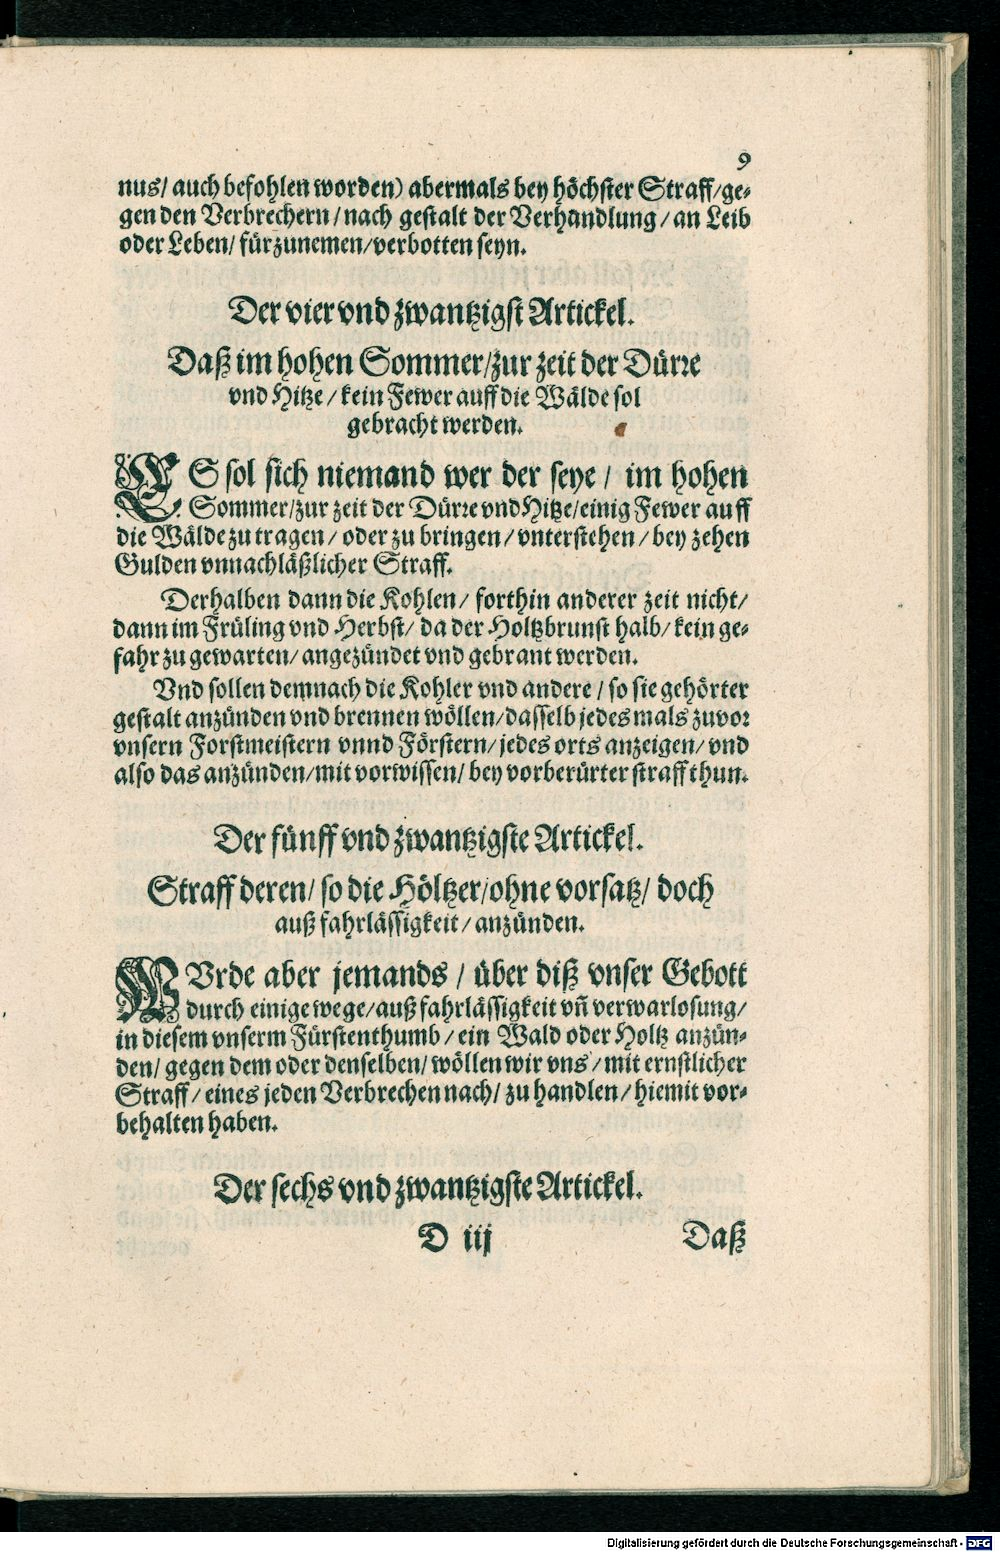 9
nus/ auch befohlen worden) abermals bey höchster Straff/ ge-
gen den Verbrechern / nach gestalt der Verhandlung / an Leib
oder Leben/ fürzunemen/ verbotten seyn.
Der vier vnd zwantzigst Artickel.
Daß im hohen Sommer/ zur zeit der Dürre
vnd Hitze / kein Fewer auff die Wälde sol
gebracht werden.
ES sol sich niemand wer der seye / im hohen
Sommer/ zur zeit der Dürre vnd Hitze/ einig Fewer auff
die Wälde zu tragen / oder zu bringen / vnterstehen / bey zehen
Gulden vnnachläßlicher Straff.
Derhalben dann die Kohlen/ forthin anderer zeit nicht/
dann im Früling vnd Herbst/ da der Holtzbrunst halb/ kein ge-
fahr zu gewarten/ angezündet vnd gebrant werden.
Vnd sollen demnach die Kohler vnd andere / so sie gehörter
gestalt anzünden vnd brennen wöllen/ dasselb jedes mals zuvor
vnsern Forstmeistern vnnd Förstern/ jedes orts anzeigen/ vnd
also das anzünden/ mit vorwissen/ bey vorberürter straff thun.
Der fünff vnd zwantzigste Artickel.
Straff deren/ so die Höltzer/ ohne vorsatz/ doch
auß fahrlässigkeit / anzünden.
WVrde aber jemands / über diß vnser Gebott
durch einige wege/ auß fahrlässigkeit vñ verwarlosung/
in diesem vnserm Fürstenthumb / ein Wald oder Holtz anzün-
den/ gegen dem oder denselben/ wöllen wir vns / mit ernstlicher
Straff / eines jeden Verbrechen nach/ zu handlen / hiemit vor-
behalten haben.
Der sechs vnd zwantzigste Artickel.
D iij Daß
Digitalisierung gefördert durch die Deutsche Forschungsgemeinschaft - DFG